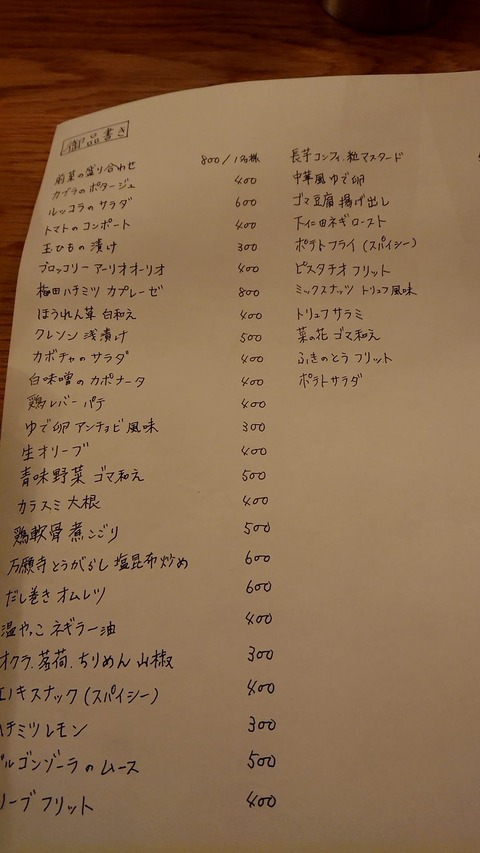 御品書き
前菜の盛り合わせ 800/1名様
カブラのポタージュ 400
ルッコラのサラダ 600
トマトのコンポート 400
玉ひもの漬け 300
ブロッコリー アーリオオーリオ 400
梅田ハチミツ カプレーゼ 800
ほうれん草 白和え 400
クレソン 浅漬け 500
カボチャのサラダ 400
白味噌のカポナータ 400
鶏レバー パテ 400
ゆで卵 アンチョビ風味 300
生オリーブ 400
青味野菜 ゴマ和え 500
カラスミ大根 400
鶏軟骨煮こごり 500
万願寺とうがらし 塩昆布炒め 600
だし巻き オムレツ 600
温やっこ ネギラー油 400
オクラ.茗荷.ちりめん山椒 300
エノキスナック(スパイシー) 400
ハチミツレモン 300
ルゴンゾーラのムース 500
リーブフリット 400
長芋コンフィ.粒マスタード
中華風ゆで卵
ゴマ豆腐 揚げ出し
下仁田ネギロースト
ポテトフライ(スパイシー)
ピスタチオ フリット
ミックスナッツ トリュフ風味
トリュフサラミ
菜の花 ゴマ和え
ふきのとう フリット
ポテトサラダ